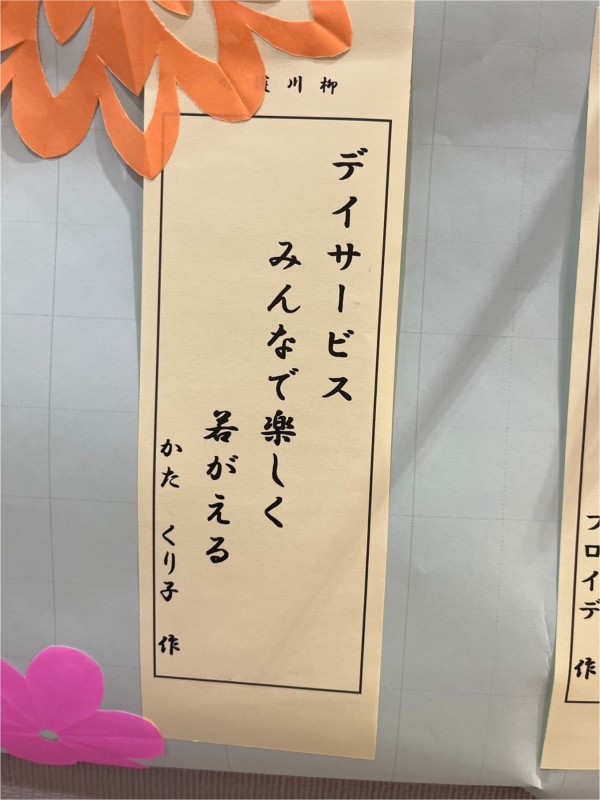 川柳
デイサービス
みんなで楽しく
若がえる
かた くり子 作
フロイデ 作